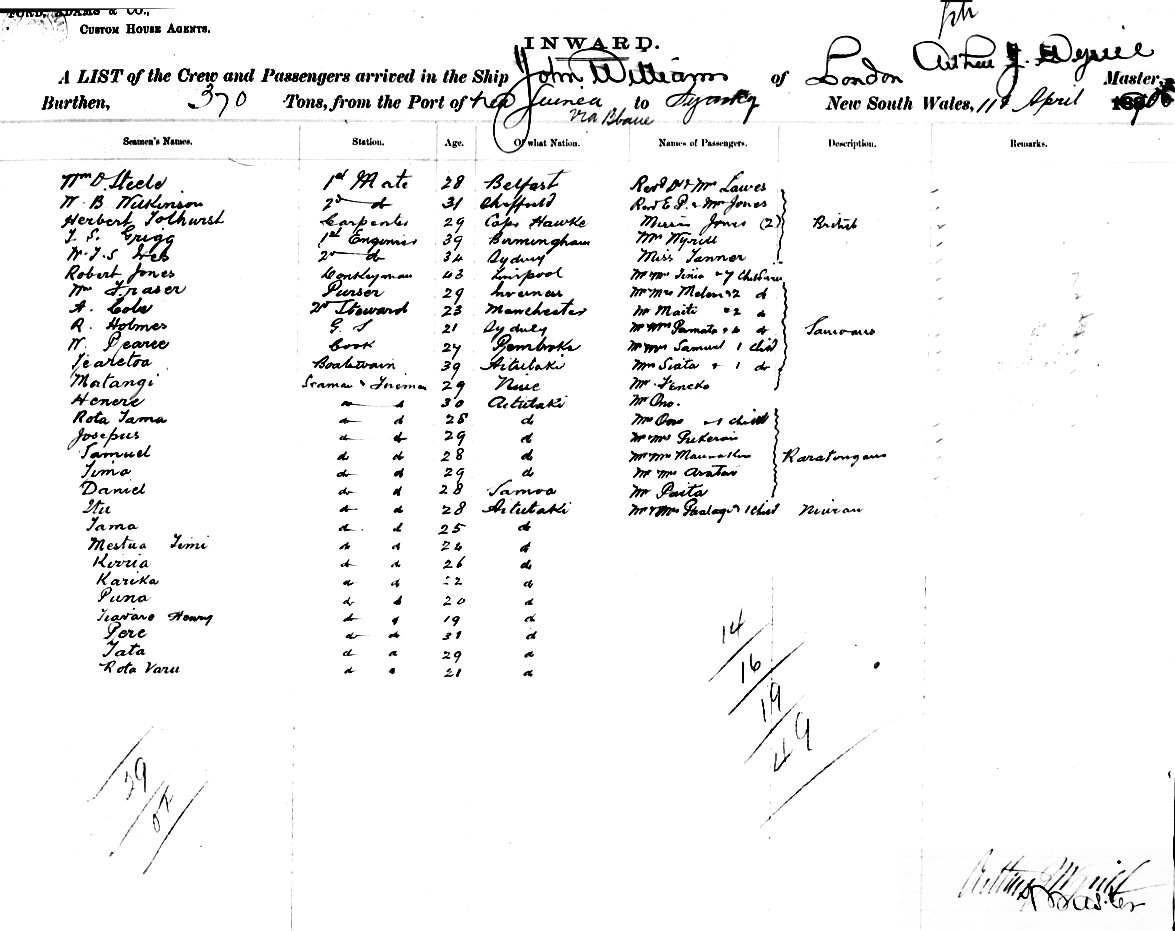 FORD, ADAMS & CO.,
CUSTOM HOUSE AGENTS.
INWARD.
A LIST of the Crew and Passengers arrived in the Ship John Williams of London Arthur J. Wyrill Master,
Burthen, 370 Tons, from the Port of New Guinea to Sydney New South Wales, 11th April
via Bbane
Seamen's Names. Station. Age. Of what Nation. Names of Passengers. Description. Remarks.
Wm D. Steele 1st Mate 28 Belfast Revd Dr & Mrs Lawes
W. B Wilkinson 2nd d 31 Sheffield Revd E. P. & Mrs Jones
Herbert Tolhurst Carpenter 29 Cape Hawke Misses Jones (2) British
T. S. Grigg 1st Engineer 39 Birmingham Mrs Wyrill
W. J. S 2nd d 34 Sydney Miss Tanner
Robert Jones Donkeyman 43 Liverpool Mr Mrs & 7 Children
Wm Fraser Purser 29 Inverness Mr Mrs & 2 d
A. Cole 2nd Steward 23 Manchester Mr Maiti & 2 d
R. Holmes G. S 21 Sydney Mr Mrs & 4 d Samoans
W. Pearce Cook 27 Pembroke Mr Mrs Samuel 1 child
Tearetoa Boatswain 39 Aitutaki Mrs Siata & 1 d
Matangi Seaman & Fireman 29 Niue Mr
Henere d d 30 Aitutaki Mr Ono.
Rota Tama d d 25 d Mrs Ono & 1 child
Josepus d d 29 d Mr Mrs
Samuel d d 28 d Mr Mrs Raratongans
Tima d d 29 d Mr Mrs
Daniel d d 28 Samoa Mr
Itu d d 28 Aitutaki Mr & Mrs & 1 child Niuean
Tama d d 25 d
Mestua Timi d d 26 d
d d 26 d
Karika d d 22 d
Puna d d 20 d
Tiavare Henry d d 19 d
Pere d d 31 d
Tata d d 29 d
Rota Varu d d 21 d
14
16
19
49
29
Arthur J Wyrill
Master